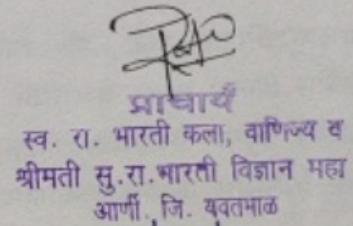 प्राचार्य
स्व. रा. भारती कला, वाणिज्य व
श्रीमती सु.रा.भारती विज्ञान महा
आर्णी. जि. यवतमाळ